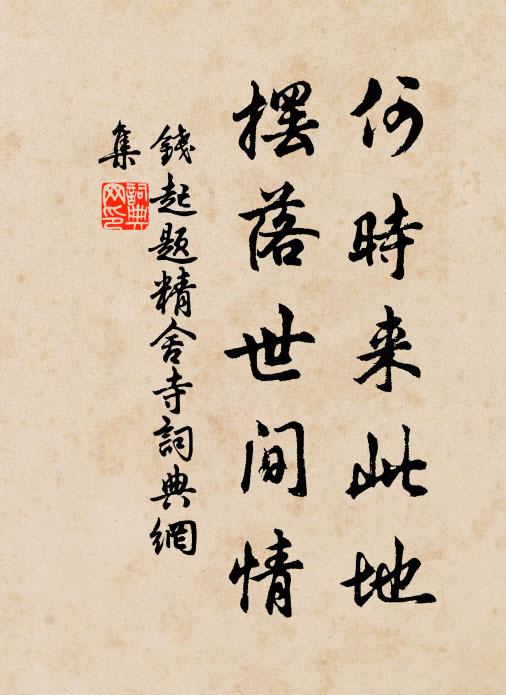 何時来此地
擺落世间情
錢起题精舍寺詞典網
集
詞典网印